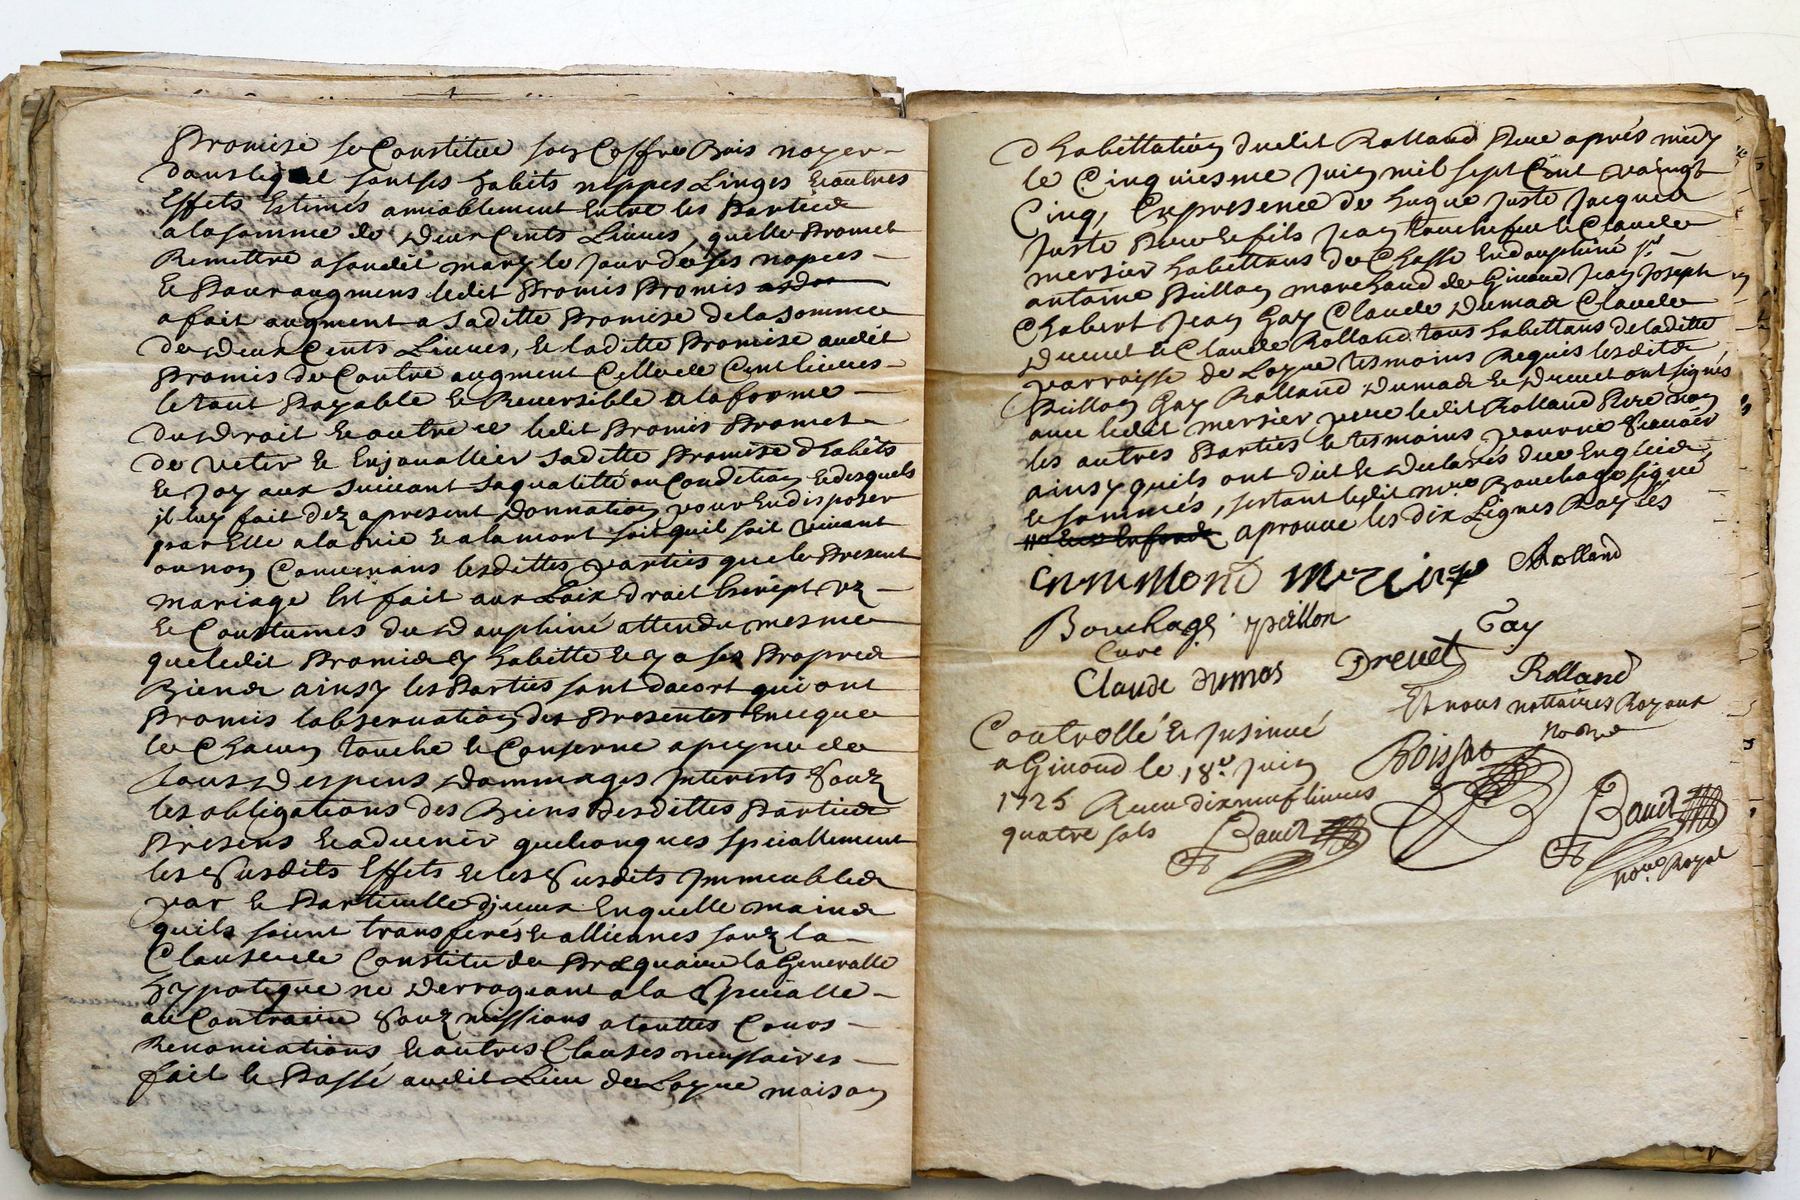 Promise se Constitue son Coffre Bois noyer
dans lequel sont ses habits nippes Linges et autres
Effets Estimés amiablement Entre les Parties
a la somme de Deux Cents Livres, quelle Promet
Remettre a sondit mary le Jour de ses nopces
Et Pour augment ledit Promis Promis
a fait augment a Saditte Promise de la somme
de Deux Cents Livres, et laditte Promise audit
Promis de Contre augment Celle de Cent livres
le tout Payable et Reversible a la forme
du Droit et outre ce ledit Promis Promet
de vetir et Enjouallier saditte Promise dhabits
et Joyaux suivant sa qualitté ou Condition et desquels
il luy fait dez a present Donnation pour En disposer
par Elle a la vie et a la mort soit quil soit vivant
ou non Convenans lesdittes parties que le Present
mariage Est fait aux Loix droit Escript vz
et Coustumes du Dauphiné attendu mesme
que ledit Promis y habitte et y a ses Propres
Biens ainsy les Parties sont dacort qui ont
Promis lobservation des Presentes En ce que
les Chacun touche et Conserne a peyne de
tous Despens Dommages Interests Souz
les obligations des Biens desdittes Parties
Presens et advenir quelconques speciallement
les Susdits Effets et les Susdits Immeubles
par et Particulle djceux En quelle mains
quils soient transferés et alliennes souz la
Clause de Constitu de Precquaire la Generalle
hypotique ne Derrogeant a la Speciale
au Contraire Souz missions a touttes Cours
Renonciations et autres Clauses necessaires
fait et Passé audit Lieu de Loyne maison
dhabittation dudit Rolland Pere aprés midy
le Cinquiesme Juin mil sept Cent vaingt
Cinq, En presence de hugue Juste Jacques
Juste Pere et fils Jean touchefeu et Claude
mersier habittans de Chasse En dauphiné sr
antoine Pitlion marchand de Givord Jean Joseph
Chabert Jean Gay Claude Dumas Claude
Drevet et Claude Rolland tous habittans de laditte
parroisse de Loyne tesmoins Requis lesdits
Pitlion Gay Rolland Dumas et Drevet ont signés
avec ledit mersier pere ledit Rolland Pere non
les autres Parties et tesmoins pour ne Scavoir
ainsy quils ont dit et Declarés de ce Enquis
et sommés, sertant ledit mre Bouchage signé
aprouve les dix Lignes Rayées
mercier Rolland
Bouchage pitlion Gay
Curé
Claude dumas Drevet Rolland
Et nous nottaires Royaux
Controllé et Insinué
a Givord le 18e Juin Boissat
1725 Receu dixneuf livres
quatre sols Baud Baud
nore Royal